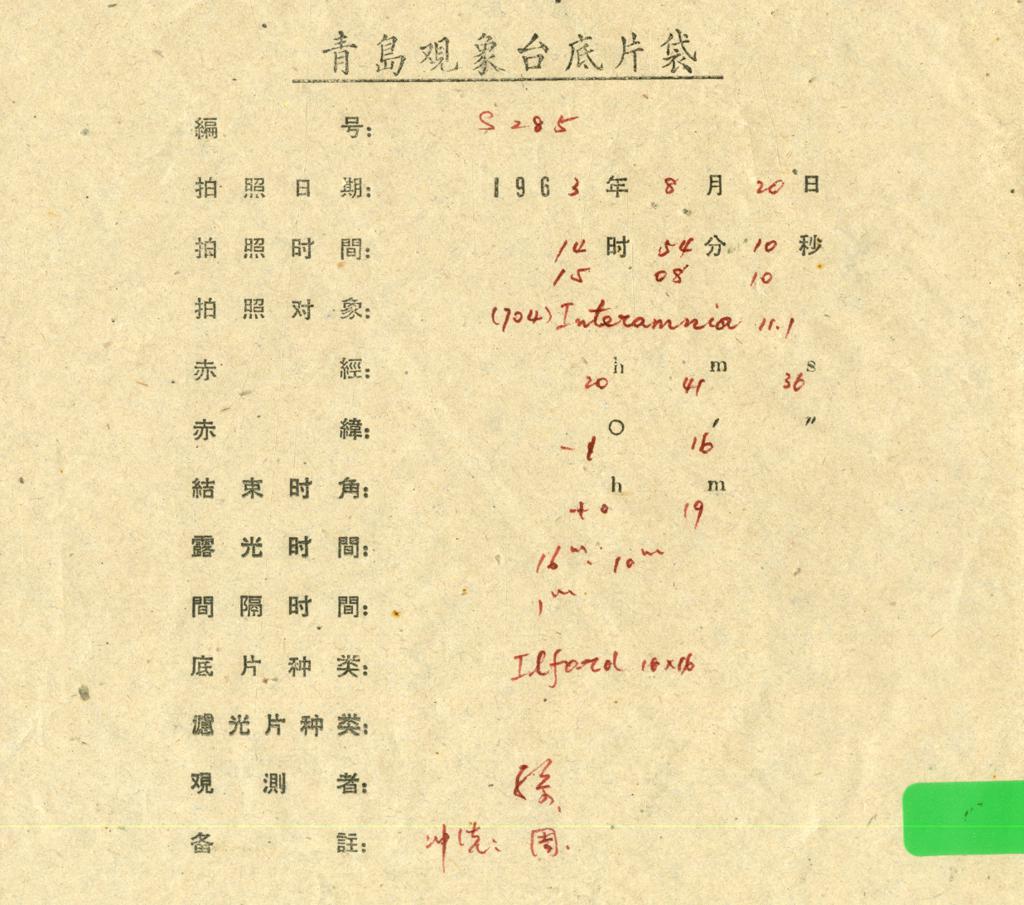 青島观象台底片袋
編号: S 285
拍照日期: 1963年8月20日
拍照时間: 14时54分10秒
15 08 10
拍照对象: (704) Interamnia 11.1
赤經: 20h 41m 36s
赤緯: -1° 16′ ″
結束时角: +0h 19m
露光时間: 16m. 10m
間隔时間: 1m
底片种类: Ilford 16×16
濾光片种类:
观測者: 徐
备註: 冲洗: 周.